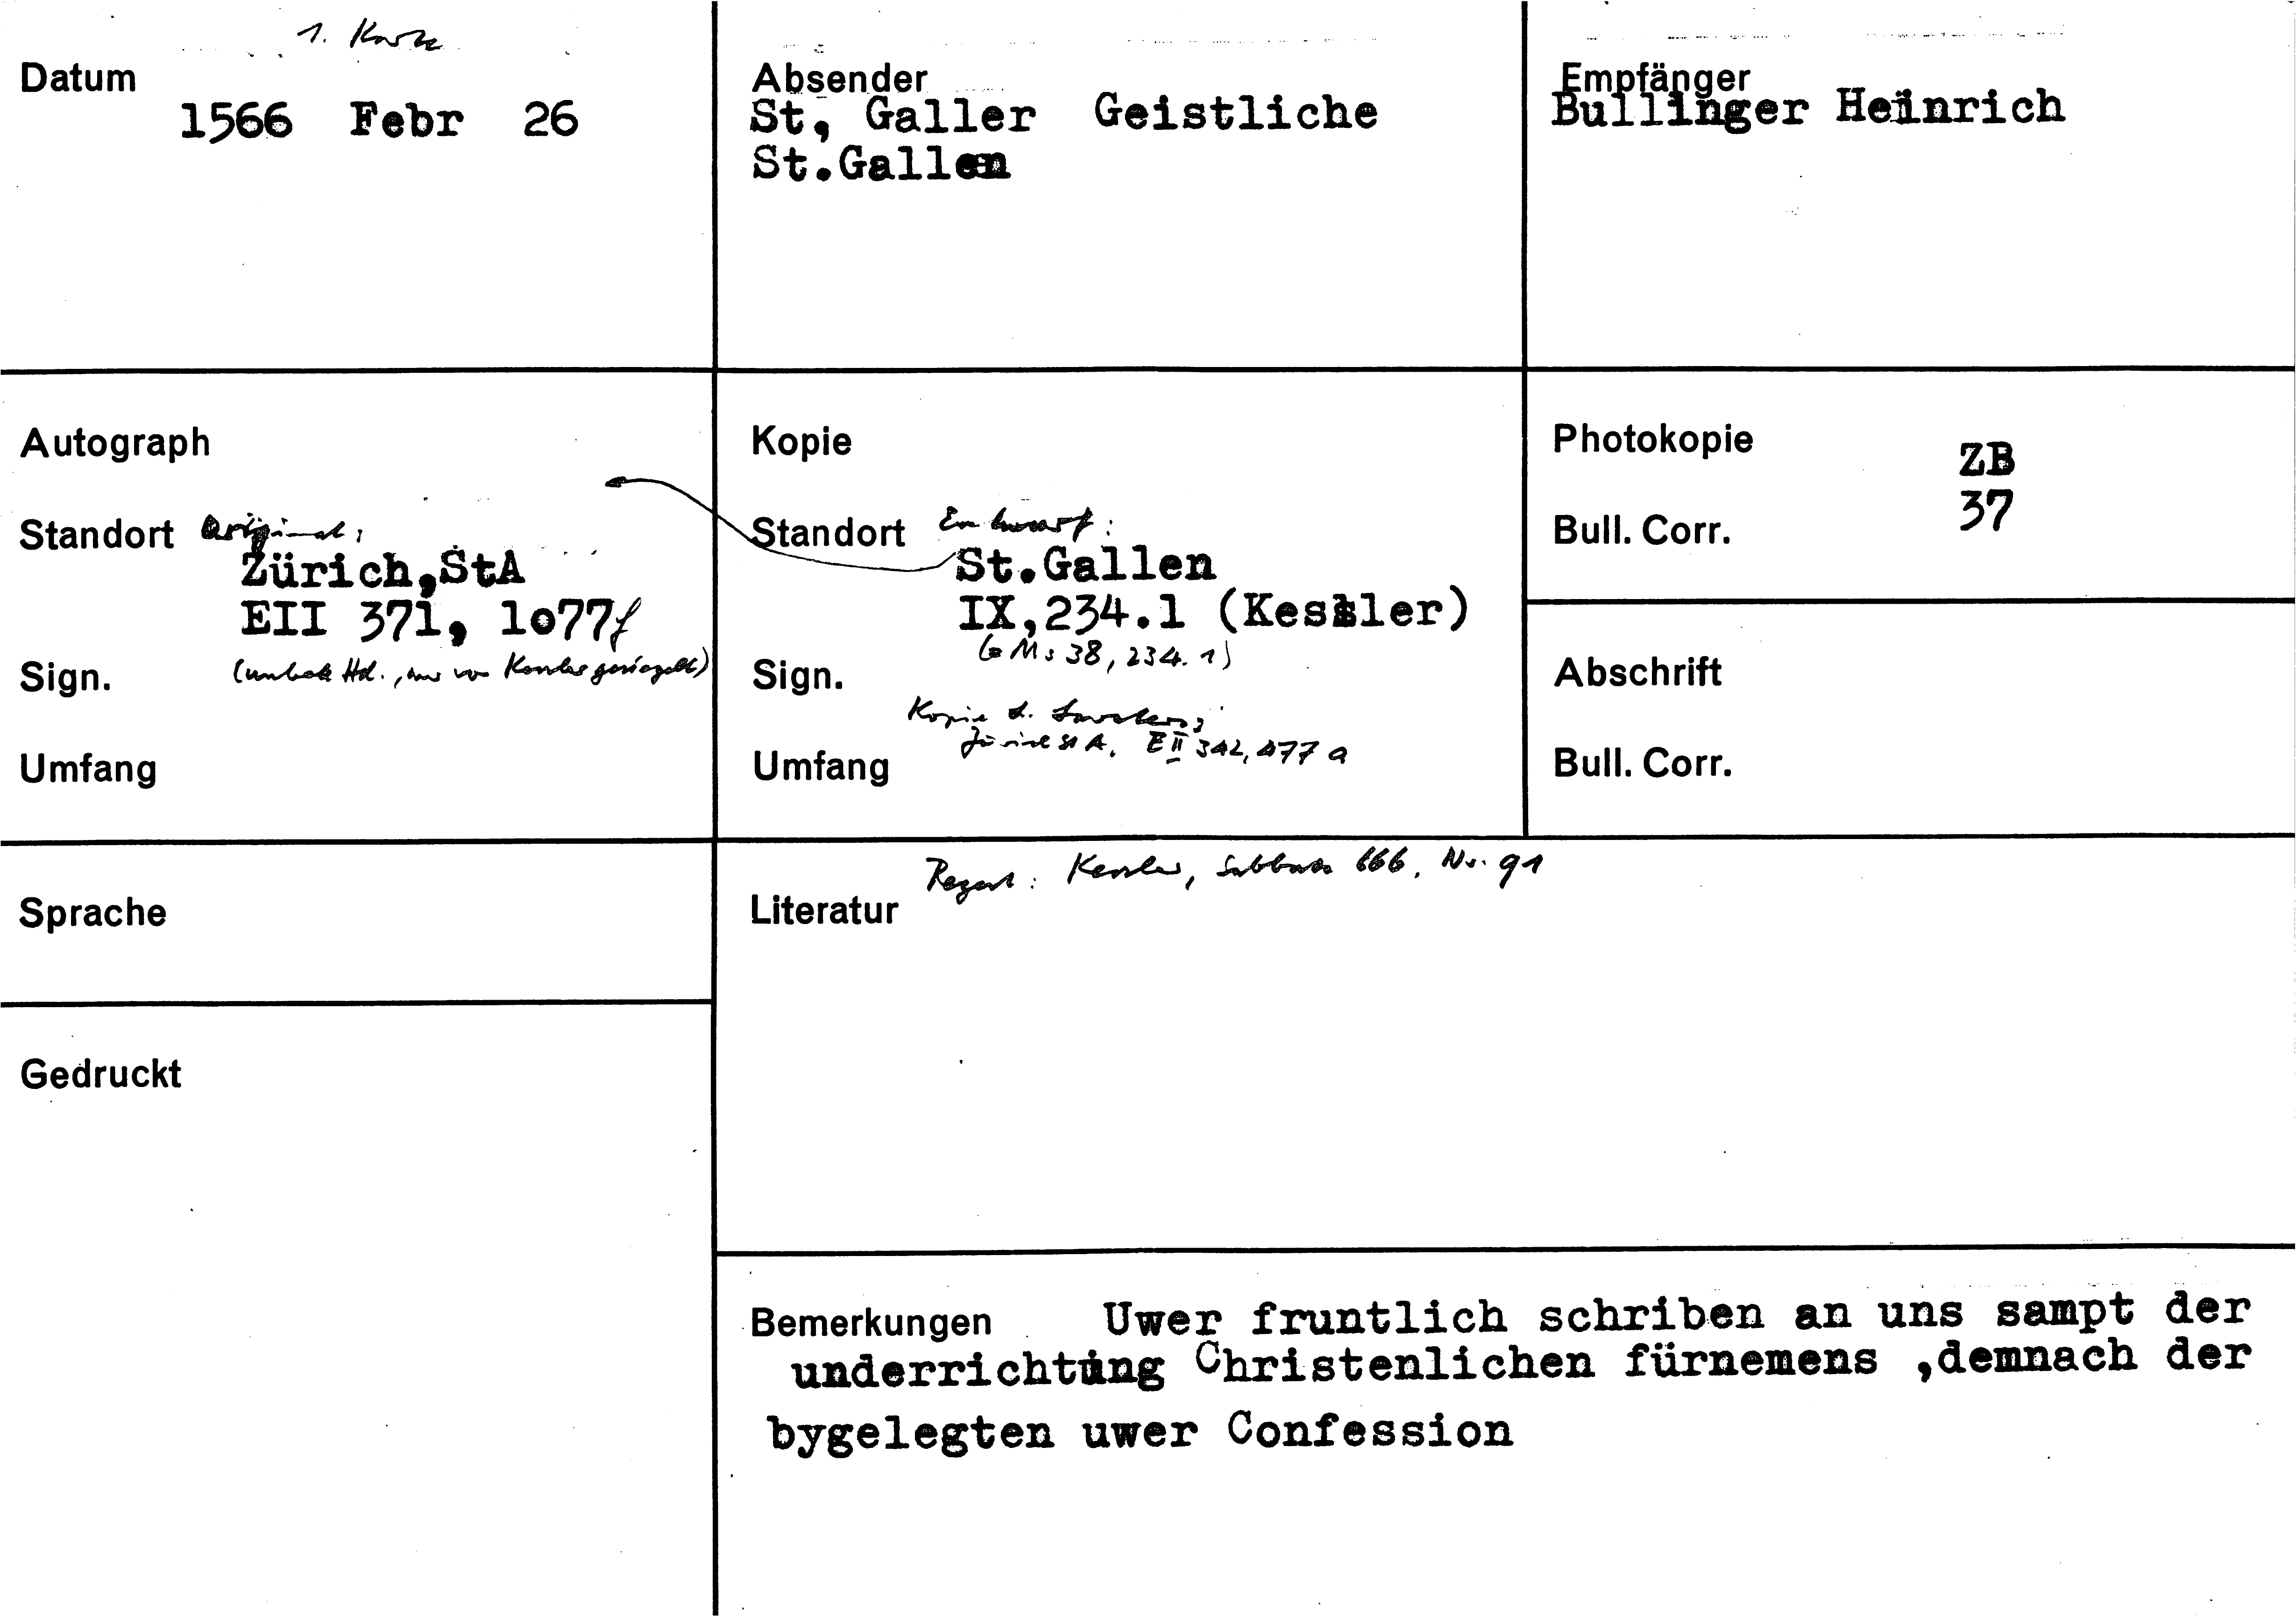 1. Karte
Datum
1566 Febr 26
Absender
St, Galler Geistliche
St.Gallen
Empfänger
Bullinger Heinrich
Autograph
Standort Original:
Zürich,StA
EII 371, 1o77f
Sign. (unbek Hd., nur von Kessler gesiegelt)
Umfang
Kopie
Standort Entwurf:
St.Gallen
IX,234.1 (Kessler)
(= Ms 38, 234.1)
Sign.
Kopie d.
Zürich StA, EII 342, 477a
Umfang
Photokopie ZB
Bull. Corr. 37
Abschrift
Bull. Corr.
Sprache
Gedruckt
Regest: Kessler, Sabbata 666, Nr. 91
Literatur
Bemerkungen Uwer fruntlich schriben an uns sampt der
underrichtung Christenlichen fürnemens ,demnach der
bygelegten uwer Confession